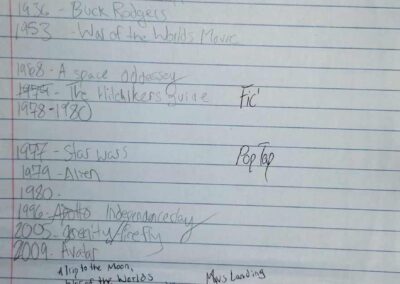 1936 - Buck Rodgers
1953 - War of the Worlds Movie
1968 - A space oddessey
1975 - The Hitchikers guide Fic'
1978-1980
1977 - Star wars Pop Top
1979 - Alien
1980 -
1996 - Apollo Independance day
2005 - Serenity/firefly
2009 - Avatar
A Trip to the Moon, Mars Landing
War of the Worlds